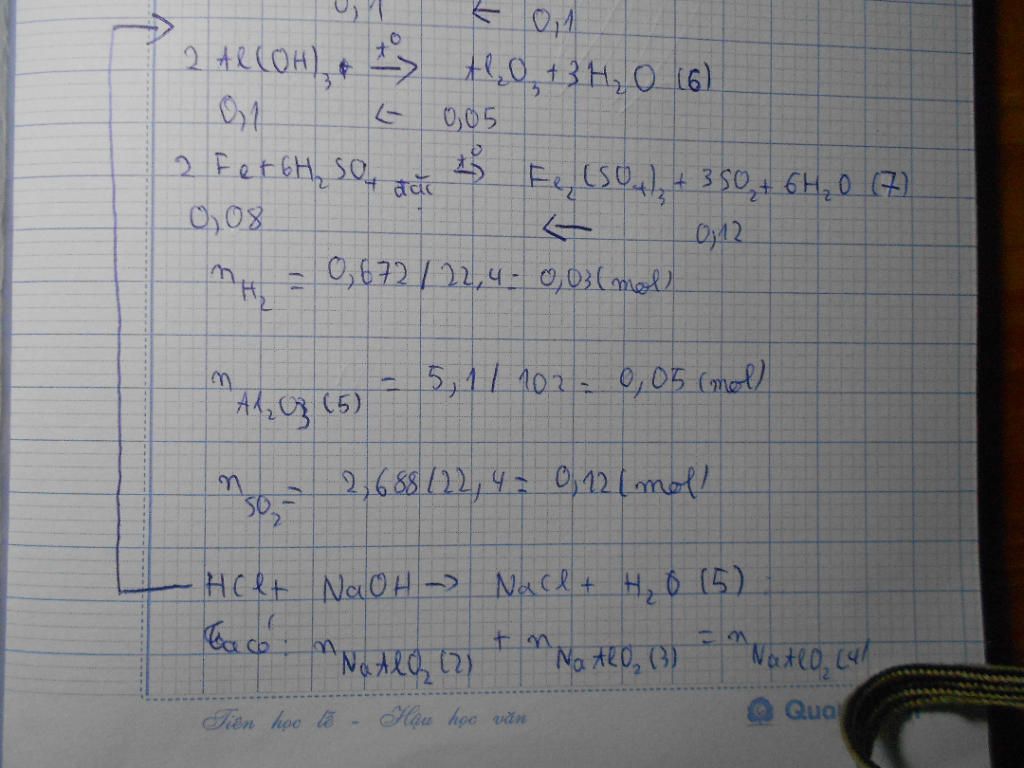 0,1 ← 0,1
2 Al(OH)₃ t⁰→ Al₂O₃ + 3H₂O (6)
0,1 ← 0,05
2 Fe + 6H₂SO₄ đặc t⁰→ Fe₂(SO₄)₃ + 3SO₂ + 6H₂O (7)
0,08 ← 0,12
n H₂ = 0,672 / 22,4 = 0,03 (mol)
n Al₂O₃ (5) = 5,1 / 102 = 0,05 (mol)
n SO₂ = 2,688 / 22,4 = 0,12 (mol)
HCl + NaOH → NaCl + H₂O (5)
Ta có: n NaAlO₂ (2) + n NaAlO₂ (3) = n NaAlO₂ (4)
Tiên học lễ - Hậu học văn